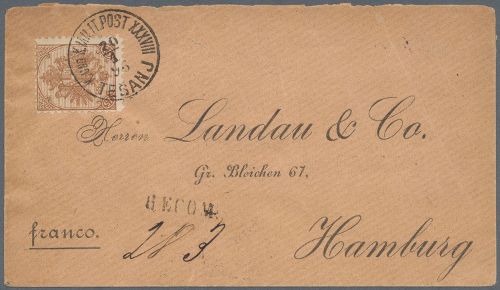 K. UND K. MILIT. POST XXXVIII
TESANJ
Herren Landau & Co.
Gr. Bleichen 67.
RECOM.
franco.
283
Hamburg